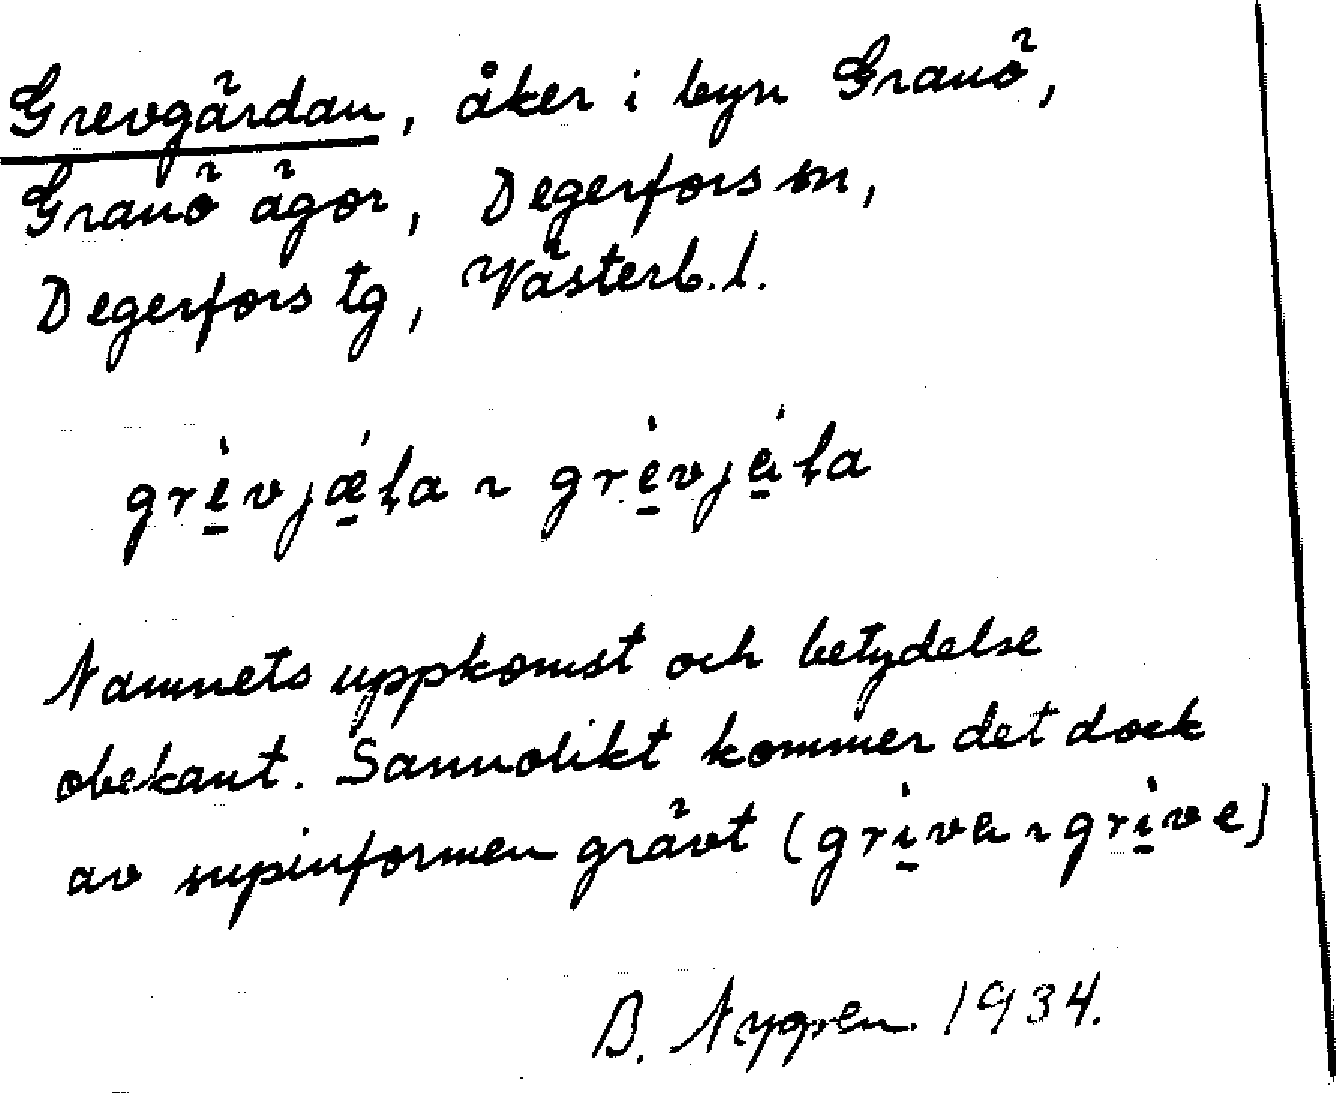 Grevgärdan, åker i byn Granö,
Granö ägor, Degerfors sn,
Degerfors tg, Västerb. l.
grèvjǽɫa ~ grèvjáɫa
Namnets uppkomst och betydelse
obekant. Sannolikt kommer det dock
av supinformen grävt (grìva ~ grìve)
B. Nygren 1934.